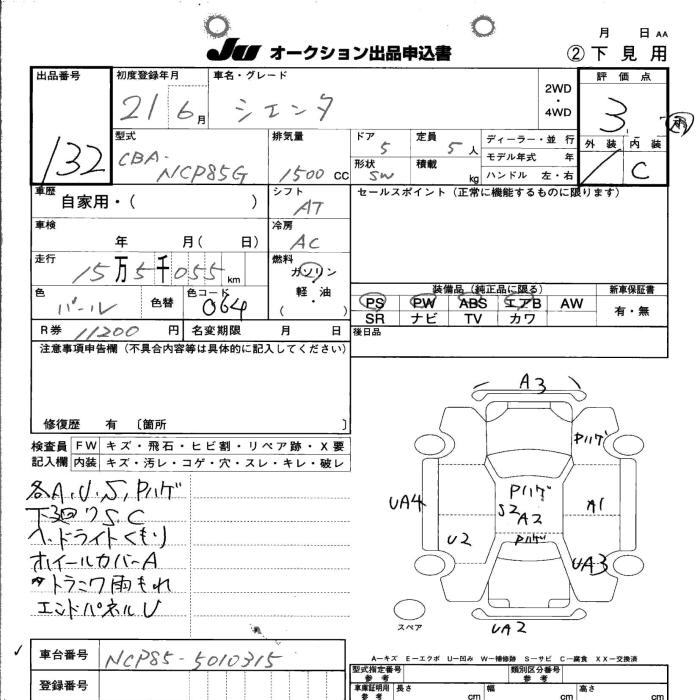 月 日 AA
JU オークション出品申込書 ②下見用
出品番号 初度登録年月 車名・グレード 2WD・4WD 評価点
132 21 6月 シエンタ 3
型式 排気量 ドア 定員 ディーラー・並行 外装 内装
CBA-NCP85G 1500 CC 5 5人 モデル年式 年 C
形状 積載 ハンドル 左・右
SW kg
車歴 シフト セールスポイント（正常に機能するものに限ります）
自家用・( ) AT
車検 冷房
年 月( 日) AC
走行 燃料
15万5千055km ガソリン
軽・油
( )
色 色替 色コード
パール 064
装備品（純正品に限る） 新車保証書
PS PW ABS エアB AW 有・無
SR ナビ TV カワ
R券 11200 円 名変期限 月 日 後日品
注意事項申告欄（不具合内容等は具体的に記入してください）
修復歴 有 〔箇所 〕
検査員記入欄
FW キズ・飛石・ヒビ割・リペア跡・X要
内装 キズ・汚レ・コゲ・穴・スレ・キレ・破レ
各A,U,S,Pハゲ
下廻りS,C
ヘッドライトくもり
ホイールカバーA
トランク雨もれ
エンドパネルU
A3
Pハゲ
UA4
Pハゲ
S2
A2
A1
U2
Pハゲ
UA3
スペア
UA2
A-キズ E-エクボ U-凹み W-補修跡 S-サビ C-腐食 XX-交換済
車台番号 NCP85-5010315
登録番号
型式指定番号 参考 類別区分番号 参考
車庫証明用 参考 長さ cm 幅 cm 高さ cm